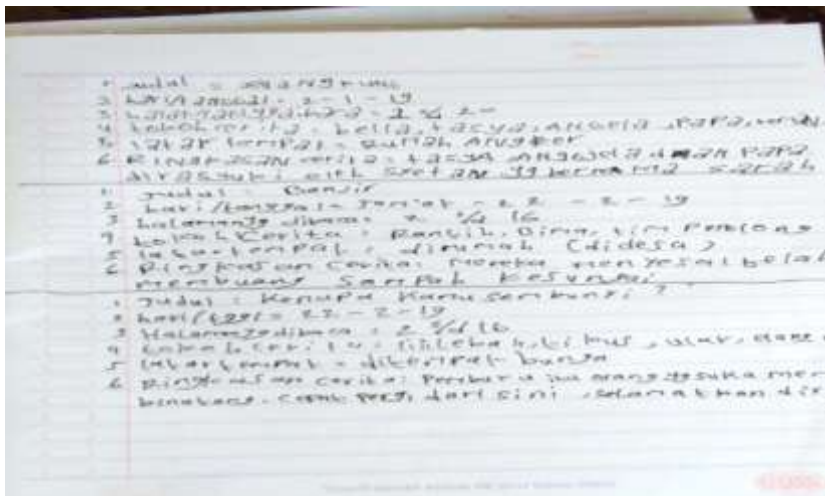 1 Judul =
2 hari/tanggal = 2 - 1 - 19
3 halaman yg dibaca = 2 s/d 20
4 tokoh cerita = bella, tasya, Angela, papa,
5 latar tempat = rumah angker
6 Ringkasan cerita = tasya Angela dan papa
dirasuki oleh setan yg bernama sarah
1 Judul : Banjir
2 hari/tanggal = Jum'at - 22 - 2 - 19
3 halaman yg dibaca : 2 s/d 16
4 tokoh cerita : Dima, tim
5 latar tempat : dirumah (didesa)
6 Ringkasan cerita: mereka menyesal
membuang sampah kesungai
1 Judul : Kenapa Kamu sembunyi ?
2 hari/tggl = 22 - 2 - 19
3 Halaman yg dibaca : 2 s/d 16
4 tokoh cerita : lebah, tikus, ular,
5 latar tempat = ditempat bunga
6 Ringkasan cerita: Pemburu itu orang yg suka
binatang. cepat pergi dari sini, selamatkan